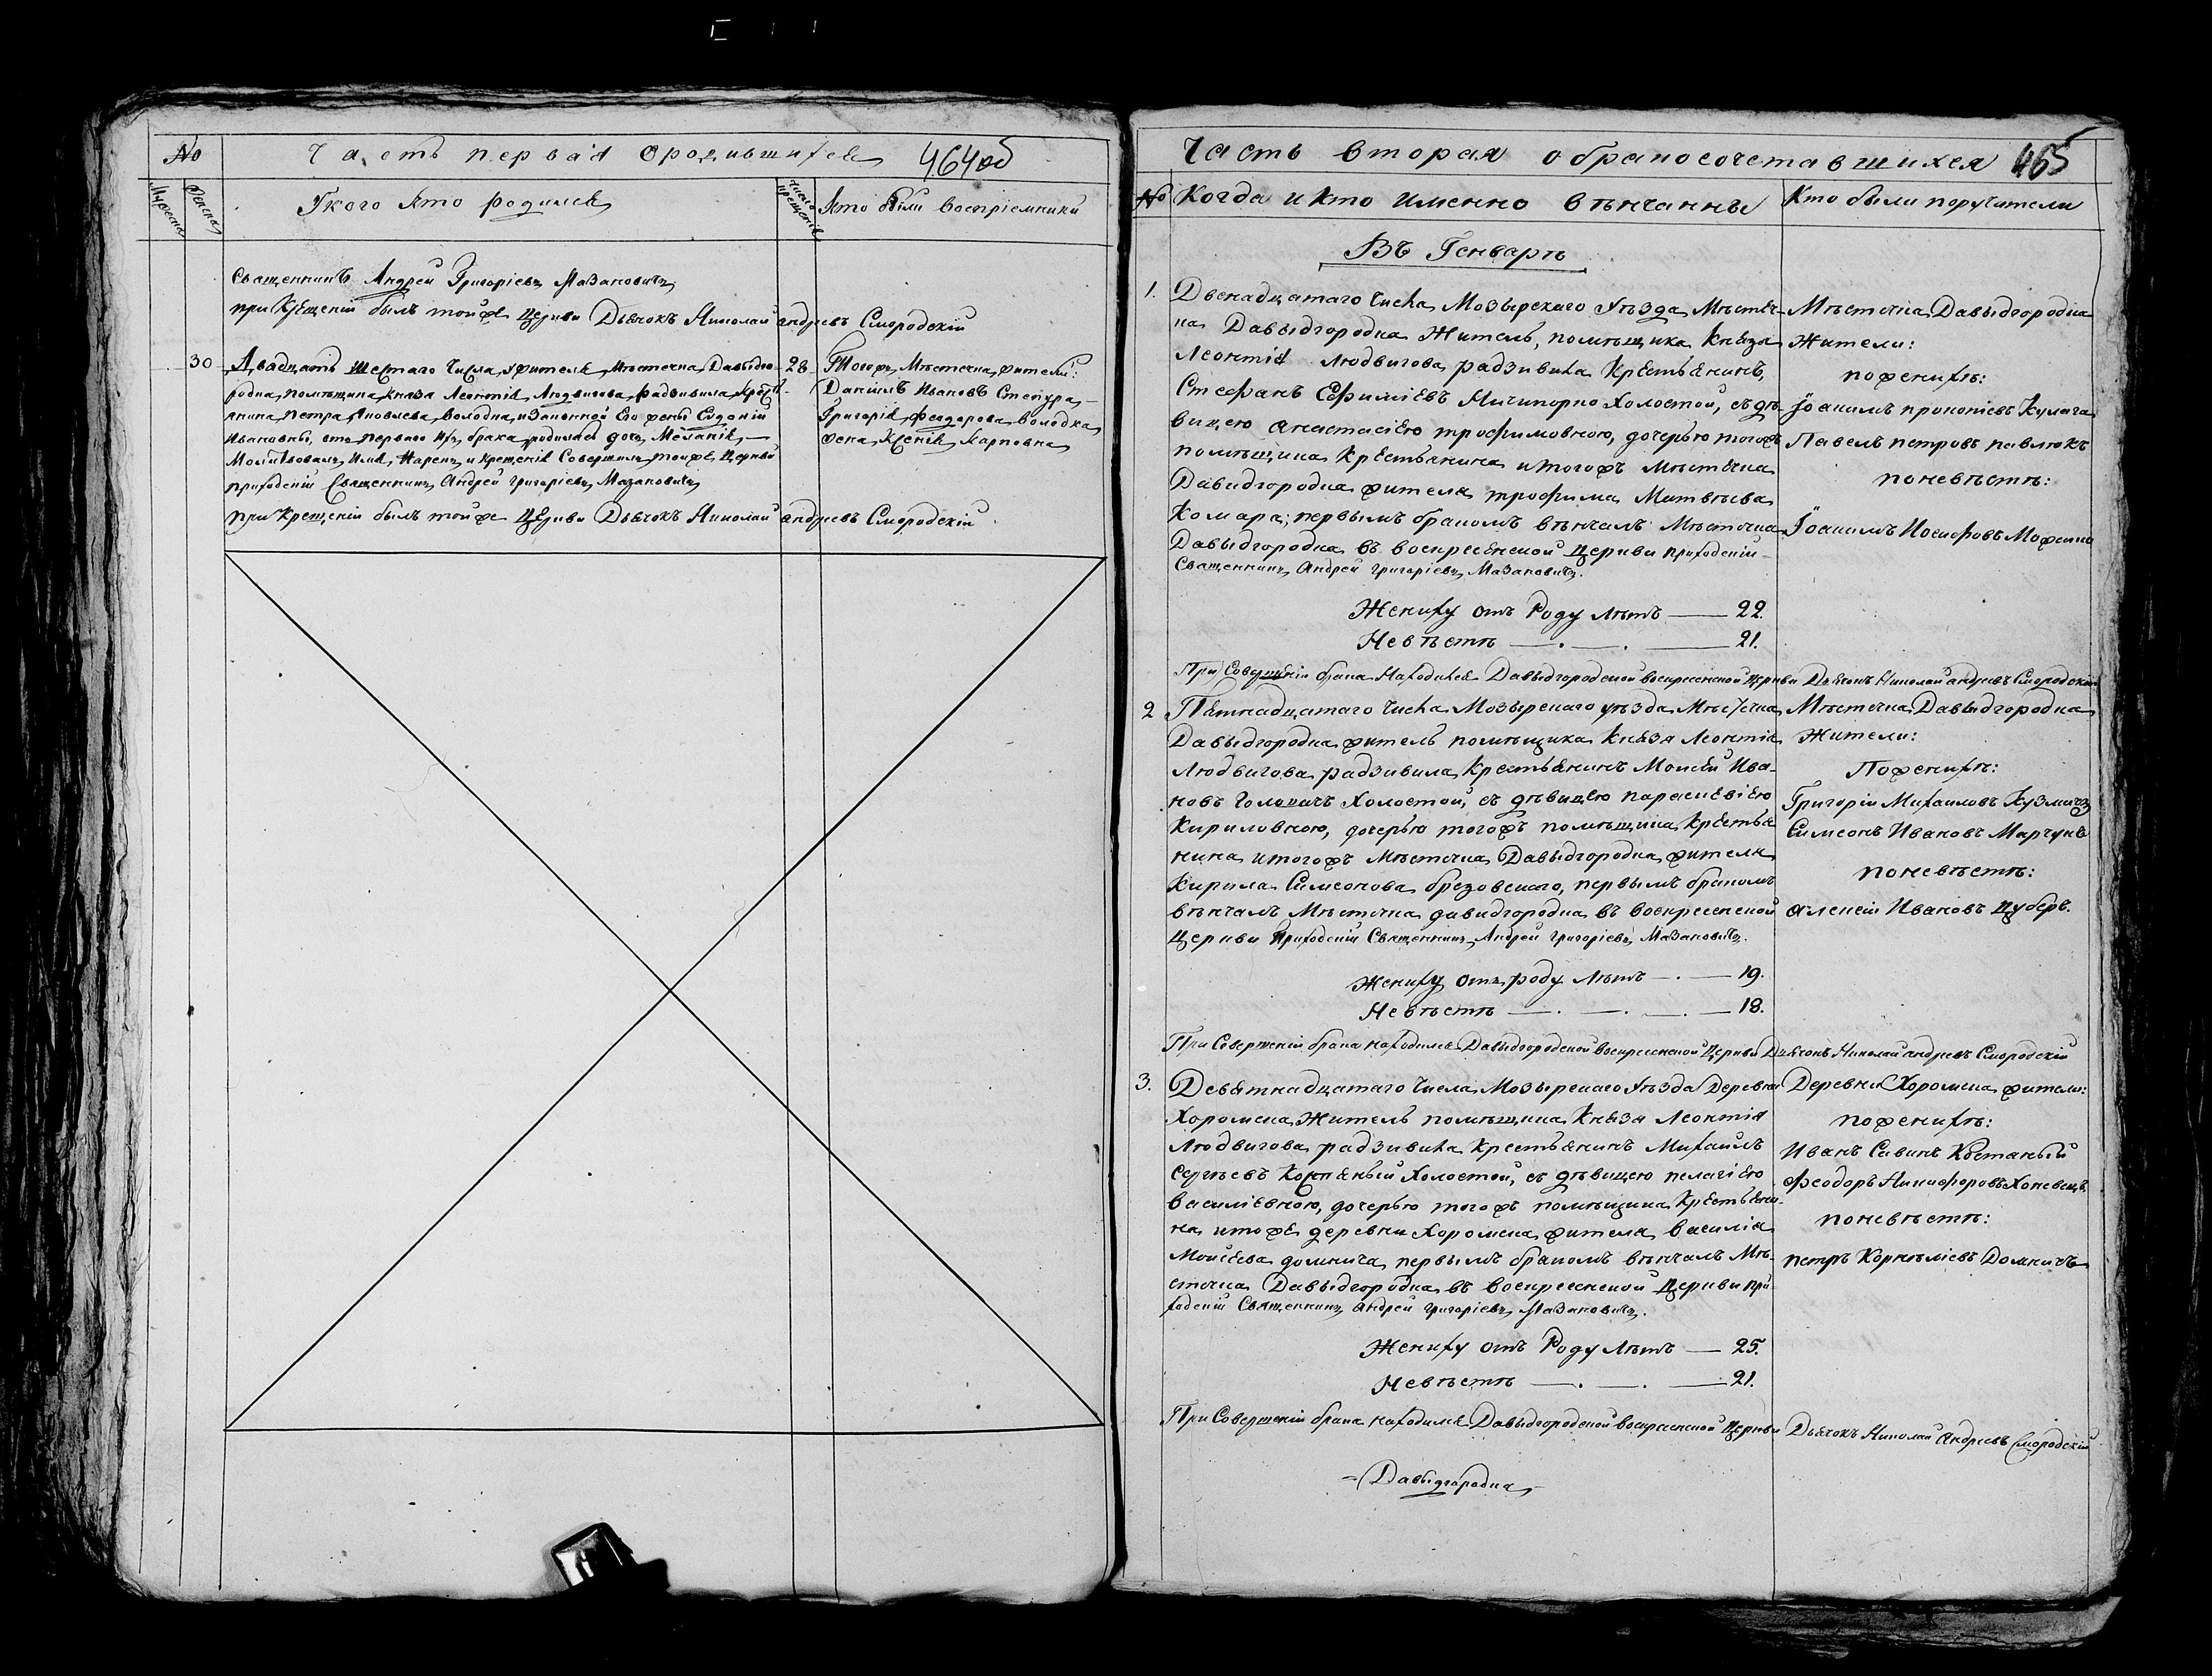 № Часть первая о родившихся 464об
Мужеска Женска У кого кто родился Число крещенія Кто были воспріемники
Священникъ Андрей Григоріевъ Мазановичъ
при Крещеніи былъ тойже Церкви Дьячокъ Николай андреевъ Смородскій
30 Двадцать шестаго Числа, Жителя Мѣстечка Давыдго- 28
родка, помѣщика Князя Леонтія Людвигова радзивила Крестья-
янина Петра Яковлева Володка, и Законной Его жены Евдокіи
Ивановны, отъ перваго ихъ брака родилась дочь Меланія,
Молитвовалъ, Имя Нарекъ, и Крещеніе Совершилъ тойже Церкви
приходскій Священникъ Андрей Григоріевъ Мазановичъ
при Крещеніи былъ тойже Церкви Дьячокъ Николай андреевъ Смородскій
Тогожъ Мѣстечка жители:
Даніилъ Ивановъ Степура
Григорія Феодорова Володка
жена Ксенія Карповна
Часть вторая о бракосочетавшихся 465
№ Когда и кто именно вѣнчанны Кто были поручители
Въ Генварѣ
1. Двенадцатаго Числа Мозырскаго Уѣзда Мѣстеч-
ка Давыдгородка Житель, помѣщика Князя
Леонтія Людвигова радзивила Крестьянинъ,
Стефанъ Ефиміевъ Ничипорко Холостой, съ дѣ-
вицею анастасіею трофимовною, дочерью тогожъ
помѣщика Крестьянина итогожъ Мѣстечка
Давидгородка жителя трофима Матвѣева
Комара; первымъ бракомъ вѣнчалъ Мѣстечка
Давыдгородка въ воскресенской Церкви приходскій
Священникъ Андрей Григоріевъ Мазановичъ.
Жениху отъ Роду лѣтъ — 22.
Невѣстѣ — . — . — 21.
При Совершеніи брака Находился Давыдгородской воскресенской Церкви Дьячокъ Николай андреевъ Смородскій
Мѣстечка Давыдгородка
Жители:
пожениху:
Іоакимъ прокопіевъ Кулага
Павелъ петровъ павлюкъ
поневѣстѣ:
Іоакимъ ИосифовъМожейко
2 Пятнадцатаго Числа Мозырскаго уѣзда Мѣстечка
Давыдгородка житель помѣщика Князя Леонтія
Людвигова радзивила Крестьянинъ Моисей Ива-
новъ Головачъ Холостой, съ дѣвицею параскевіею
Кириловною, дочерью тогожъ помѣщика Крестья-
нина итогожъ Мѣстечка Давыдгородка жителя
Кирила Симеонова брезовскаго, первымъ бракомъ
вѣнчалъ Мѣстечка давидгородка въ воскресенской
Церкви Приходскій Священникъ Андрей Григоріевъ Мазановичъ.
Жениху отъ роду лѣтъ — . — 19.
Невѣстѣ — . — . — . — 18.
При Совершеніи брака находился Давыдгородской воскресенской Церкви Дьячокъ Николай андреевъ Смородскій
Мѣстечка Давыдгородка
Жители:
Пожениху:
Григорій Михаиловъ Кузмичъ
Симеонъ Ивановъ Марчукъ
поневѣстѣ:
алексій Ивановъ Цуберъ.
3. Девятнадцатаго Числа Мозырскаго Уѣзда Деревни
Хоромска Житель помѣщика Князя Леонтія
Людвигова радзивила Крестьянинъ Михаилъ
Сергѣевъ Холостой, съ дѣвицею пелагіею
василіевною, дочерью тогожъ помѣщика Крестьяни-
на, итойже деревни Хоромска жителя Василія
Моисѣева домнича, первымъ бракомъ вѣнчалъ Мѣ-
стечка Давыдгородка въ воскресенской Церкви при-
ходскій Священникъ Андрей Григоріевъ Мазановичъ.
Жениху отъ Роду лѣтъ — 25.
Невѣстѣ — . — . — 21.
При Совершеніи брака находился Давыдгородской воскресенской Церкви Дьячокъ Николай Андреевъ Смородскій
Деревни Хоромска жители:
пожениху:
Иванъ Савинъ
Феодоръ Никифоровъ
поневѣстѣ:
петръ Корнѣліевъ Домничъ
Давыдгородка